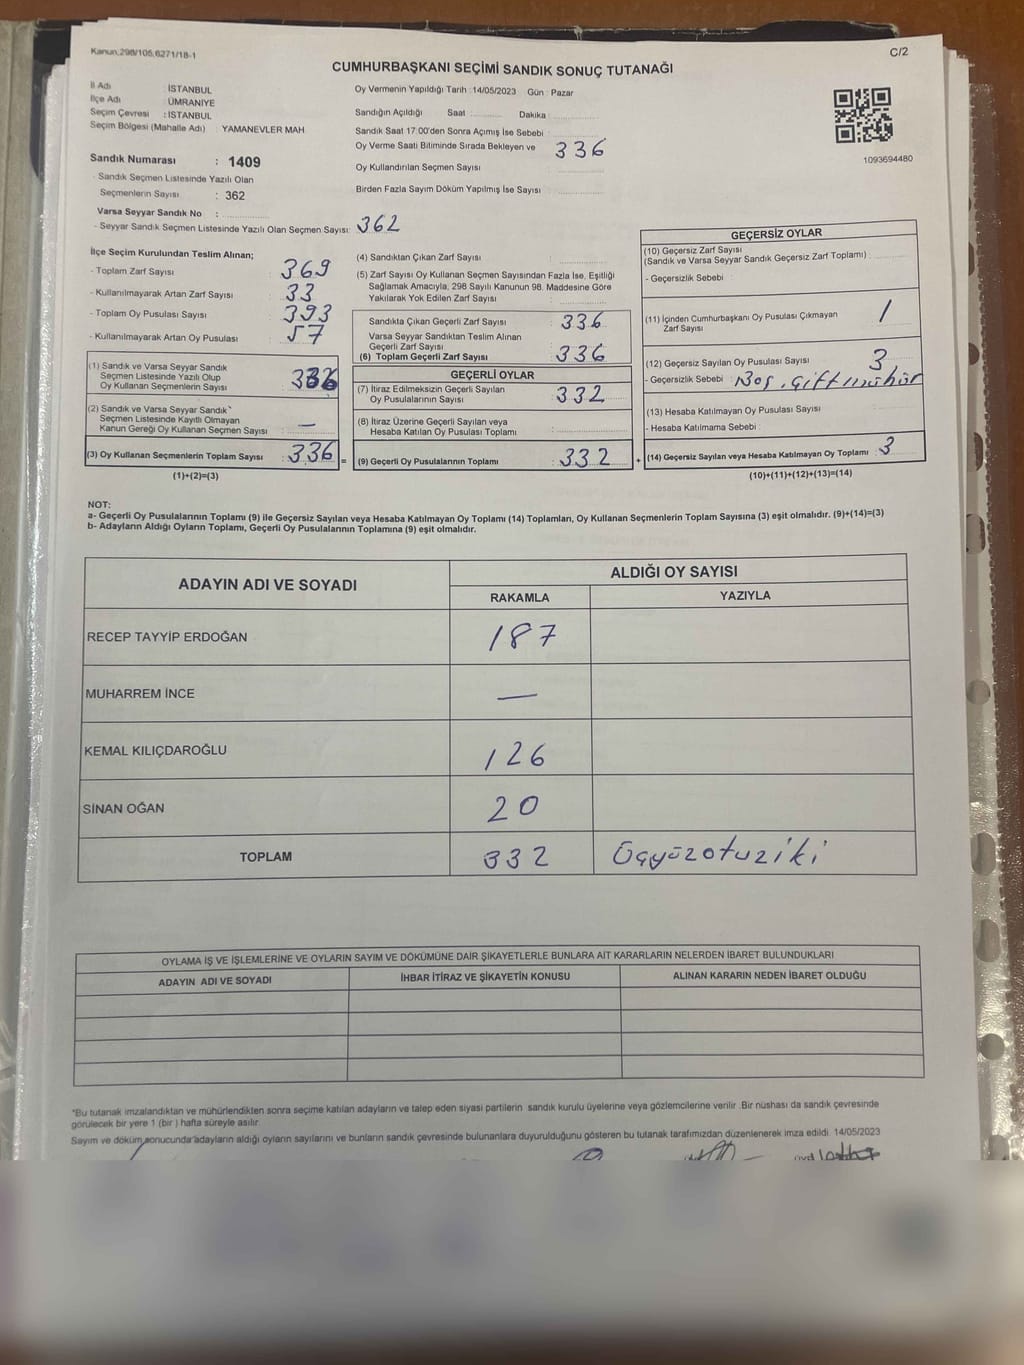 Kanun.298/105,6271/18-1
C/2
CUMHURBAŞKANI SEÇİMİ SANDIK SONUÇ TUTANAĞI
İl Adı İSTANBUL
İlçe Adı ÜMRANİYE
Seçim Çevresi : İSTANBUL
Seçim Bölgesi (Mahalle Adı) : YAMANEVLER MAH.
Sandık Numarası : 1409
- Sandık Seçmen Listesinde Yazılı Olan
Seçmenlerin Sayısı : 362
Varsa Seyyar Sandık No :
- Seyyar Sandık Seçmen Listesinde Yazılı Olan Seçmen Sayısı: 362
Oy Vermenin Yapıldığı Tarih : 14/05/2023 Gün : Pazar
Sandığın Açıldığı Saat : Dakika :
Sandık Saat 17:00'den Sonra Açımış İse Sebebi :
Oy Verme Saati Bitiminde Sırada Bekleyen ve 336
Oy Kullandırılan Seçmen Sayısı
Birden Fazla Sayım Döküm Yapılmış İse Sayısı :
1093694480
İlçe Seçim Kurulundan Teslim Alınan;
- Toplam Zarf Sayısı : 369
- Kullanılmayarak Artan Zarf Sayısı : 33
- Toplam Oy Pusulası Sayısı : 393
- Kullanılmayarak Artan Oy Pusulası : 57
(1) Sandık ve Varsa Seyyar Sandık
Seçmen Listesinde Yazılı Olup
Oy Kullanan Seçmenlerin Sayısı : 336
(2) Sandık ve Varsa Seyyar Sandık
Seçmen Listesinde Kayıtlı Olmayan
Kanun Gereği Oy Kullanan Seçmen Sayısı : —
(3) Oy Kullanan Seçmenlerin Toplam Sayısı : 336 =
(1)+(2)=(3)
(4) Sandıktan Çıkan Zarf Sayısı :
(5) Zarf Sayısı Oy Kullanan Seçmen Sayısından Fazla İse, Eşitliği
Sağlamak Amacıyla, 298 Sayılı Kanunun 98. Maddesine Göre
Yakılarak Yok Edilen Zarf Sayısı :
Sandıkta Çıkan Geçerli Zarf Sayısı : 336
Varsa Seyyar Sandıktan Teslim Alınan
Geçerli Zarf Sayısı
(6) Toplam Geçerli Zarf Sayısı : 336
GEÇERLİ OYLAR
(7) İtiraz Edilmeksizin Geçerli Sayılan
Oy Pusulalarının Sayısı : 332
(8) İtiraz Üzerine Geçerli Sayılan veya
Hesaba Katılan Oy Pusulası Toplamı :
(9) Geçerli Oy Pusulalarının Toplamı : 332 +
GEÇERSİZ OYLAR
(10) Geçersiz Zarf Sayısı
(Sandık ve Varsa Seyyar Sandık Geçersiz Zarf Toplamı) :
- Geçersizlik Sebebi :
(11) İçinden Cumhurbaşkanı Oy Pusulası Çıkmayan
Zarf Sayısı : 1
(12) Geçersiz Sayılan Oy Pusulası Sayısı : 3
- Geçersizlik Sebebi : Boş, Çift mühür
(13) Hesaba Katılmayan Oy Pusulası Sayısı :
- Hesaba Katılmama Sebebi :
(14) Geçersiz Sayılan veya Hesaba Katılmayan Oy Toplamı : 3
(10)+(11)+(12)+(13)=(14)
NOT:
a- Geçerli Oy Pusulalarının Toplamı (9) ile Geçersiz Sayılan veya Hesaba Katılmayan Oy Toplamı (14) Toplamları, Oy Kullanan Seçmenlerin Toplam Sayısına (3) eşit olmalıdır. (9)+(14)=(3)
b- Adayların Aldığı Oyların Toplamı, Geçerli Oy Pusulalarının Toplamına (9) eşit olmalıdır.
ADAYIN ADI VE SOYADI
ALDIĞI OY SAYISI
RAKAMLA YAZIYLA
RECEP TAYYİP ERDOĞAN 187
MUHARREM İNCE —
KEMAL KILIÇDAROĞLU 126
SİNAN OĞAN 20
TOPLAM 332 Üçyüzotuziki
OYLAMA İŞ VE İŞLEMLERİNE VE OYLARIN SAYIM VE DÖKÜMÜNE DAİR ŞİKAYETLERLE BUNLARA AİT KARARLARIN NELERDEN İBARET BULUNDUKLARI
ADAYIN ADI VE SOYADI İHBAR İTİRAZ VE ŞİKAYETİN KONUSU ALINAN KARARIN NEDEN İBARET OLDUĞU
*Bu tutanak imzalandıktan ve mühürlendikten sonra seçime katılan adayların ve talep eden siyasi partilerin sandık kurulu üyelerine veya gözlemcilerine verilir. Bir nüshası da sandık çevresinde
görülecek bir yere 1 (bir) hafta süreyle asılır.
Sayım ve döküm sonucunda adayların aldığı oyların sayılarını ve bunların sandık çevresinde bulunanlara duyurulduğunu gösteren bu tutanak tarafımızdan düzenlenerek imza edildi. 14/05/2023